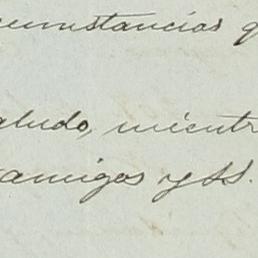 cumstancias q
aludo, miéntr
amigos y SS.